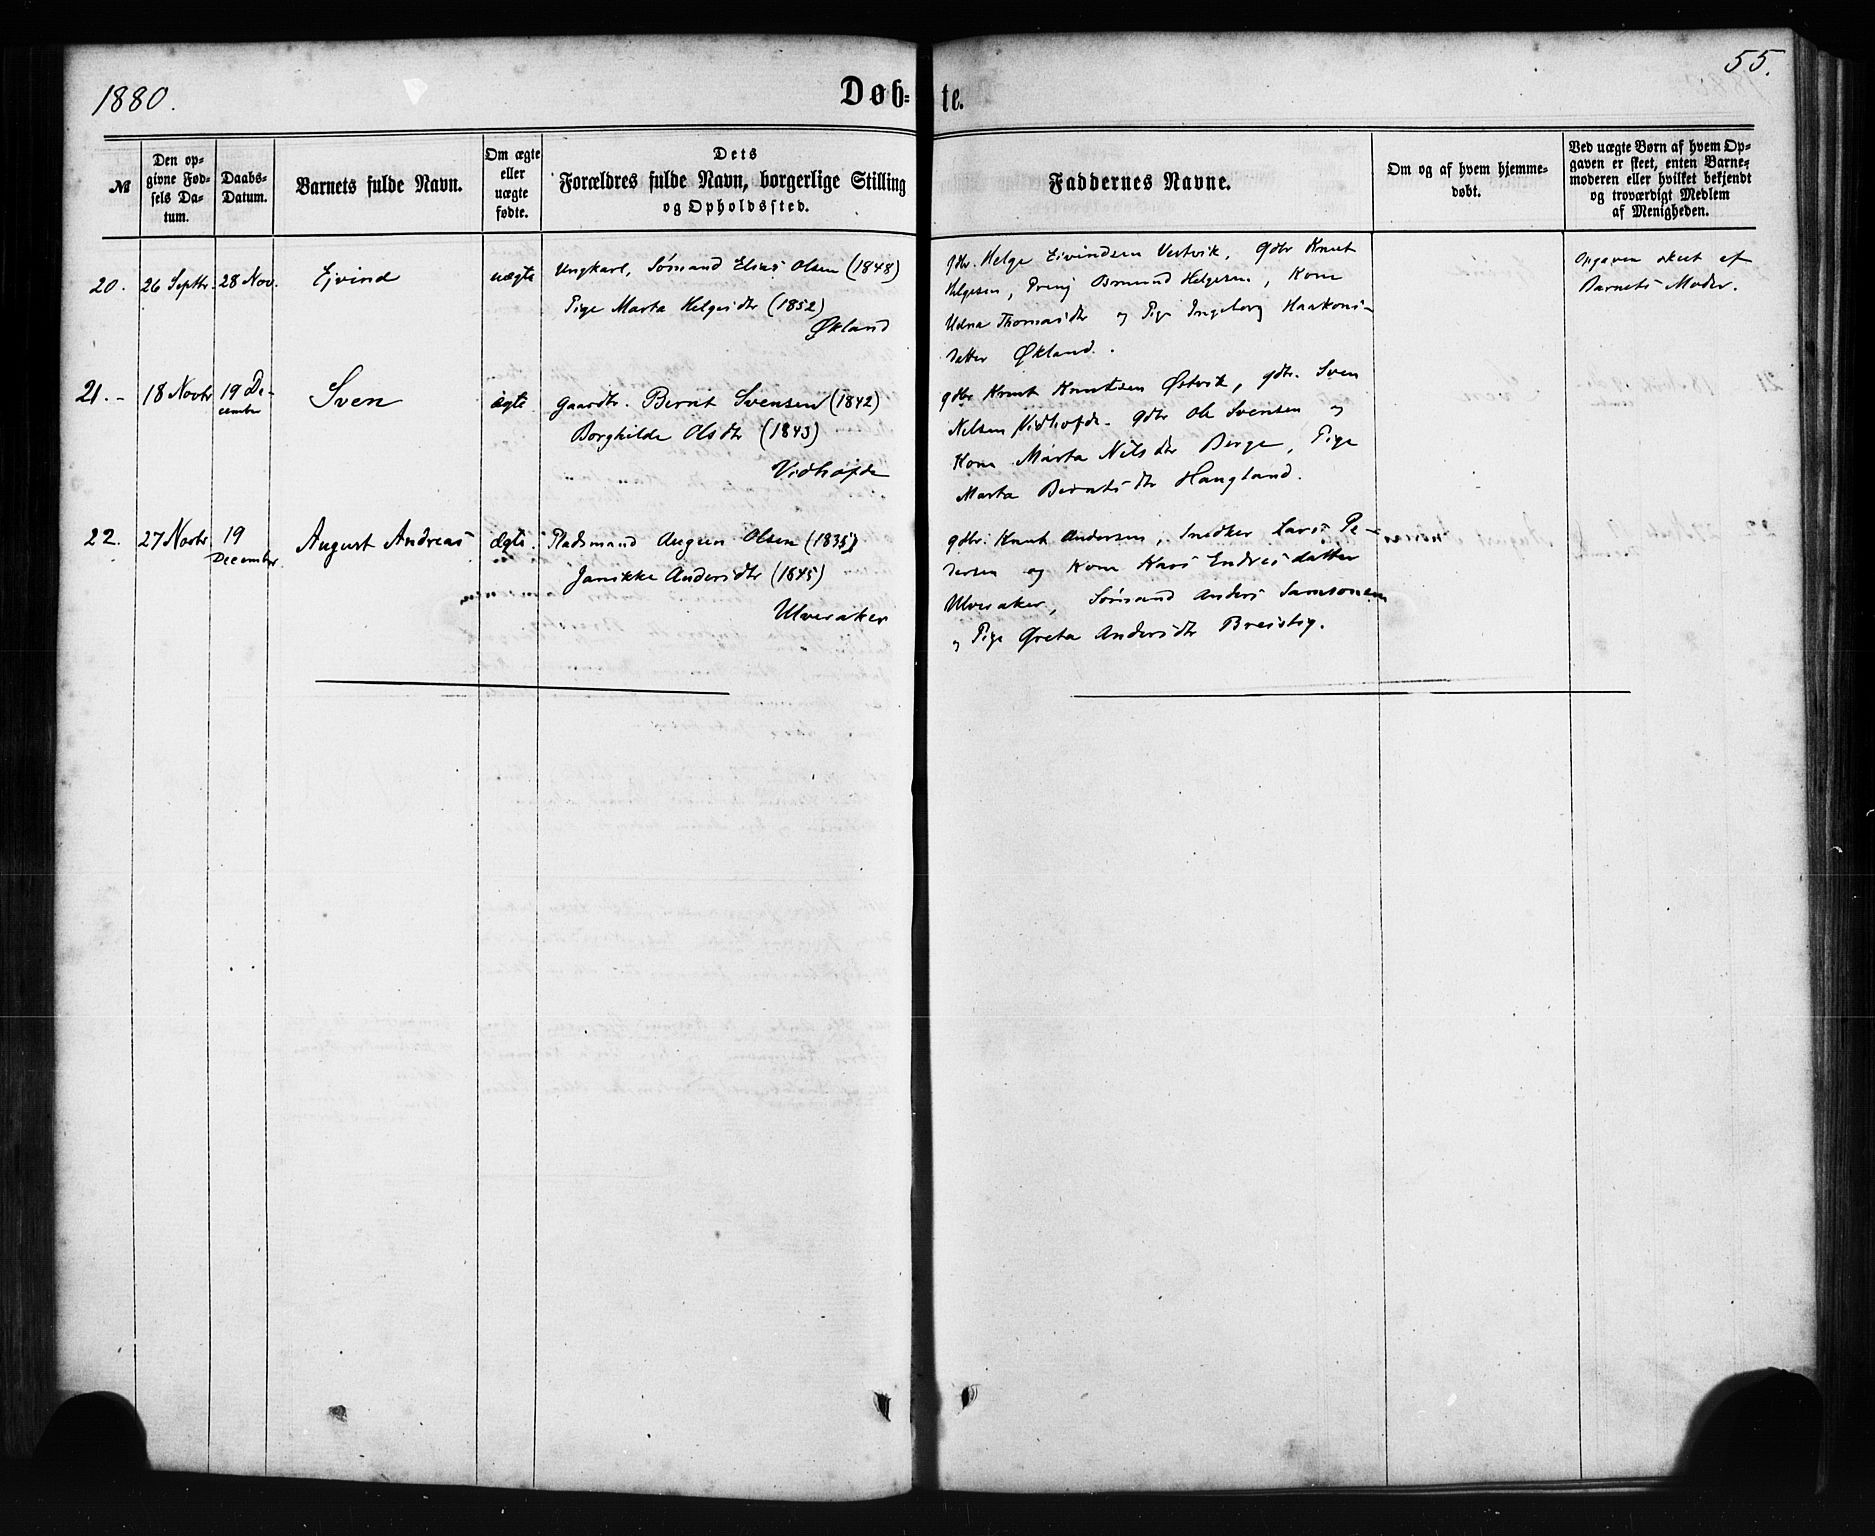 1880.
Døb-
te.
55.
№
Den op-
givne Fød-
sels Da-
tum.
Daabs-
Datum.
Barnets fulde Navn.
Om ægte
eller
uægte
fødte.
Dets
Forældres fulde Navn, borgerlige Stilling
og Opholdssted.
Faddernes Navne.
Om og af hvem hjemme-
døbt.
Ved uægte Børn af hvem Op-
gaven er skeet, enten Barne-
moderen eller hvilket bekjendt
og troværdigt Medlem
af Menigheden.
20.
26 Septbr.
28 Nov.
Ejvind
uægte
Ungkarl, Sømand Elias Olsen (1848)
Pige Marta Helgesdtr (1852)
Økland
gdbr. Helge Eivindsen Vestvik, gdbr Knut
Helgesen, Dreng Helgesen, Kone
Thomasdtr og Pige Ingeborg Haakons-
datter Økland.
Opgaven skeet af
Barnets Moder.
21.-
18 Novbr
19 De-
cember
Sven
ægte
Gaardbr. Bernt Svensen (1842)
Borghilde Olsdtr (1843)
Vidhofde
gdbr Knut Knutsen Østvik, gdbr. Sven
Nelsen Vidhofde. gdbr Ole Svensen og
Kone Marta Nilsdtr Berge, Pige
Marta Berntsdtr Haugland.
22.
27 Novbr
19
December.
August Andreas
Ægte.
Pladsmand Olsen (1835)
Janikke Andersdtr (1845)
Ulveraker
gdbr. Knut Andersen, Snedker Lars Pe-
dersen og Kone Endresdatter
Ulveraker, Sømand Anders Samsonsen
og Pige Greta Andersdtr Breistig.